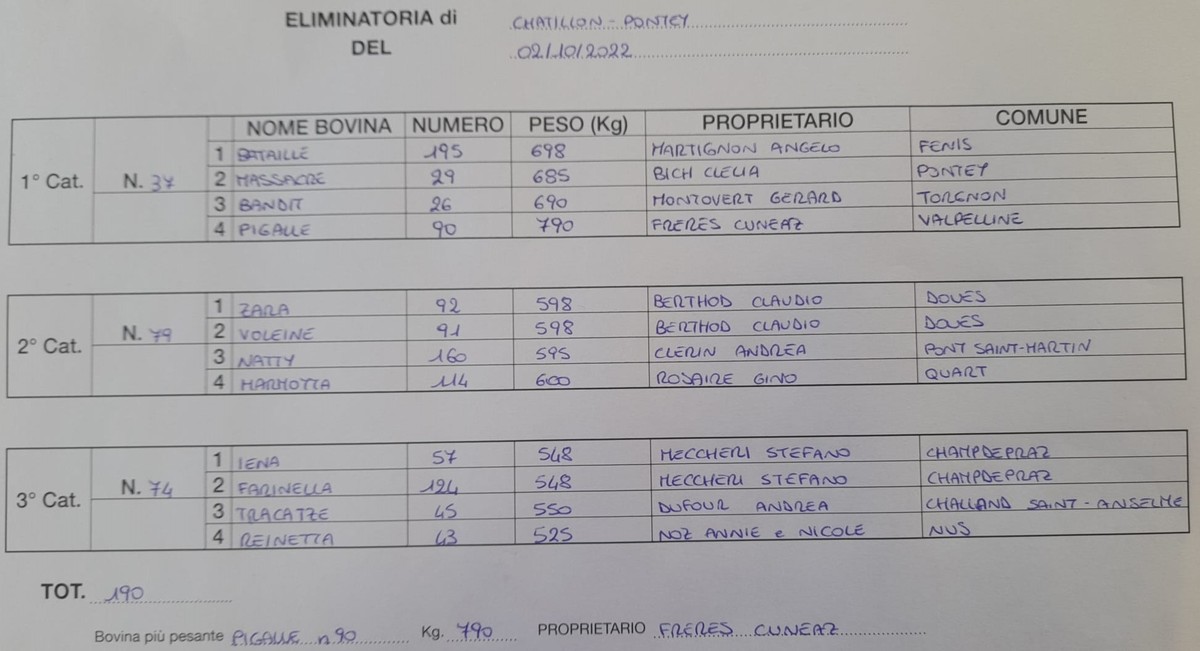 ELIMINATORIA di CHATILLON - PONTEY
DEL 02/10/2022
NOME BOVINA NUMERO PESO (Kg) PROPRIETARIO COMUNE
1° Cat. N. 37
1 BATAILLE 195 698 MARTIGNON ANGELO FENIS
2 MASSACRE 29 685 BICH CLELIA PONTEY
3 BANDIT 26 690 MONTOVERT GERARD TORGNON
4 PIGALLE 90 790 FRERES CUNEAZ VALPELLINE
2° Cat. N. 79
1 ZARA 92 598 BERTHOD CLAUDIO DOUES
2 VOLEINE 91 598 BERTHOD CLAUDIO DOUES
3 NATTY 160 595 CLERIN ANDREA PONT SAINT-MARTIN
4 MARMOTTA 114 600 ROSAIRE GINO QUART
3° Cat. N. 74
1 IENA 57 548 MECCHERI STEFANO CHAMPDEPRAZ
2 FARINELLA 124 548 MECCHERI STEFANO CHAMPDEPRAZ
3 TRACATZE 45 550 DUFOUR ANDREA CHALLAND SAINT-ANSELME
4 REINETTA 43 525 NOZ ANNIE e NICOLE NUS
TOT. 190
Bovina più pesante PIGALLE n 90 Kg. 790 PROPRIETARIO FRERES CUNEAZ